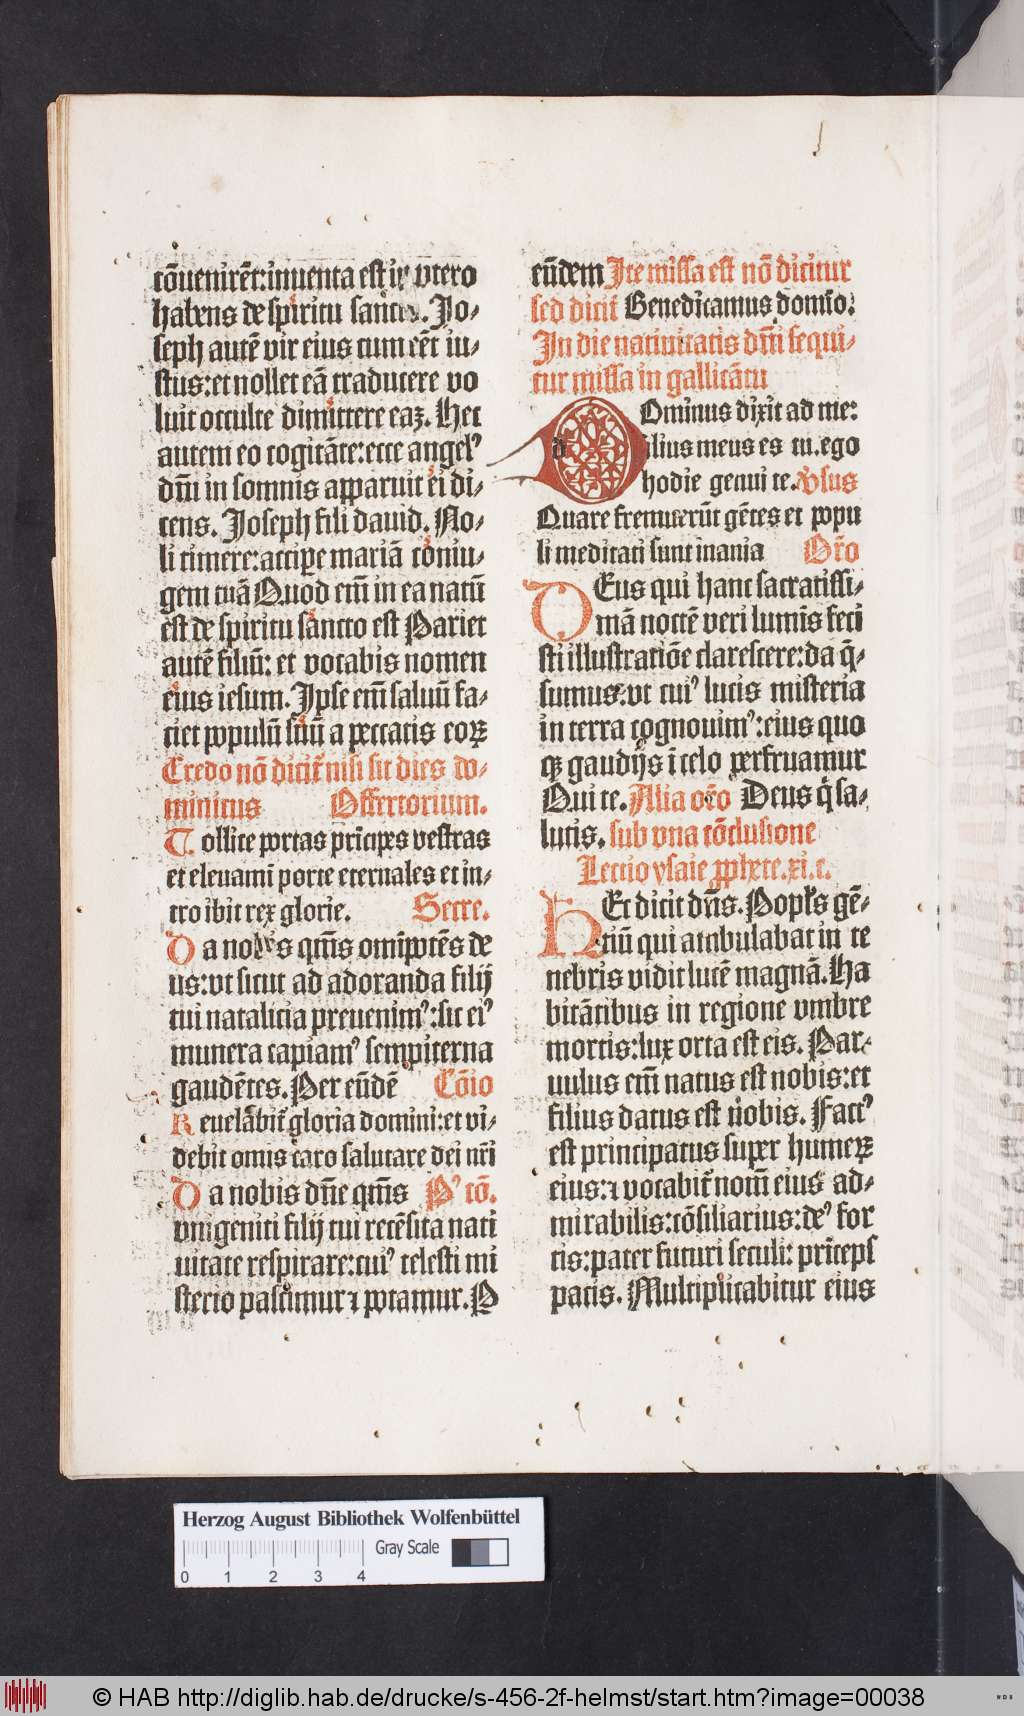 cōuenirēt:inuenta est in vtero
habens de spiritu sancto. Jo-
seph autē vir eius cum eēt iu-
stus:et nollet eā traducere vo
luit occulte dimittere eaꝫ. Hec
autem eo cogitāte:ecce angelꝰ
dn̄i in somnis apparuit ei di-
cens. Joseph fili dauid. No-
li timere:accipe mariā coniu-
gem tuā Quod em̄ in ea natū
est de spiritu sancto est Pariet
autē filiū: et vocabis nomen
eius iesum. Jpse em̄ saluū fa-
ciet populū suū a peccatis eoꝝ
Credo nō dicit̄ nisi sit dies do-
minicus Offertorium.
Tollite portas prīcipes vestras
et eleuamī porte eternales et in-
tro ibit rex glorie. Secre.
Da nobis qm̄s omīpotēs de
us:vt sicut ad adoranda filij
tui natalicia preuenimꝰ:sic eiꝰ
munera capiamꝰ sempiterna
gaudētes. Per eūdē Cōio
Reuelābit̄ gloria domini:et vi-
debit omīs caro salutare dei nr̄i
Da nobis dn̄e qm̄s Pꝰ cō.
vnigeniti filij tui recēsita nati
uitate respirare:cuiꝰ celesti mi
sterio pascimur ⁊ potamur. P
eūdem Jte missa est nō dicitur
sed dicit̄ Benedicamus domīo:
In die natiuitatis dn̄i sequi-
tur missa in gallicātu
Dominus dixit ad me:
filius meus es tu.ego
hodie genui te. Vsus
Quare fremuerūt gētes et popu
li meditati sunt inania Or̄o
DEus qui hanc sacratissi-
mā noctē veri lumīs feci
sti illustratiōe clarescere:da q̄-
sumus:vt cuiꝰ lucis misteria
in terra cognouimꝰ:eius quo
qꝫ gaudijs ī celo perfruamur
Qui te. Alia or̄o Deus q̄ sa-
lutis. sub vna cōclusione
Lectio ysaie ꝓphete.xi.c.
HEc dicit dn̄s. Popl̄s gē-
tiū qui ambulabat in te
nebris vidit lucē magnā. Ha
bitātibus in regione vmbre
mortis:lux orta est eis. Par-
uulus em̄ natus est nobis:et
filius datus est nobis. Factꝰ
est principatus super humeꝝ
eius:⁊ vocabit̄ nomē eius ad-
mirabilis:cōsiliarius:deꝰ for
tis:pater futuri seculi: prīceps
pacis. Multiplicabitur eius
Herzog August Bibliothek Wolfenbüttel
Gray Scale
0 1 2 3 4
© HAB http://diglib.hab.de/drucke/s-456-2f-helmst/start.htm?image=00038